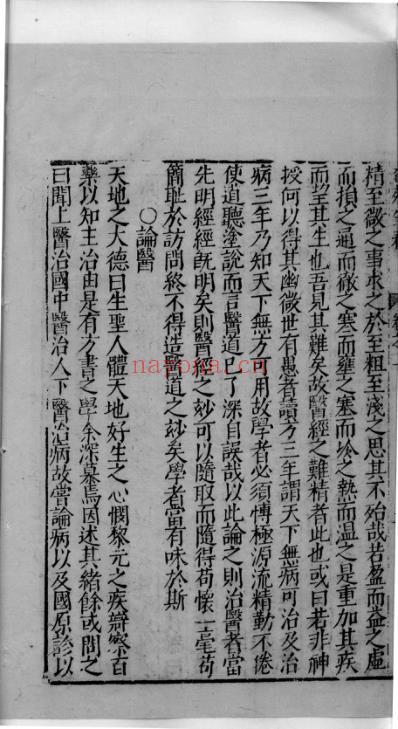 精至微之事求之於至粗至淺之思其不殆哉若盈而益之虛
而損之通而徹之塞而壅之寒而冷之熱而溫之是重加其疾
而望其生也吾見其難矣故醫經之難精者此也或曰若非神
授何以得其幽微世有愚者讀方三年謂天下無病可治及治
病三年乃知天下無方可用故學者必須博極源流精勤不倦
使道聽塗說而言醫道已了深自誤哉以此論之則治醫者當
先明經經既明矣則醫經之妙可以隨取而隨得苟懷一毫苟
簡耻於訪問終不得造醫道之妙矣學者當有味於斯
○論醫
天地之大德曰生聖人體天地好生之心憫黎元之疾辯察百
藥以知主治由是有方書之學余深慕焉因述其緒餘或問之
曰聞上醫治國中醫治人下醫治病故嘗論病以及國原診以
nayona.cn